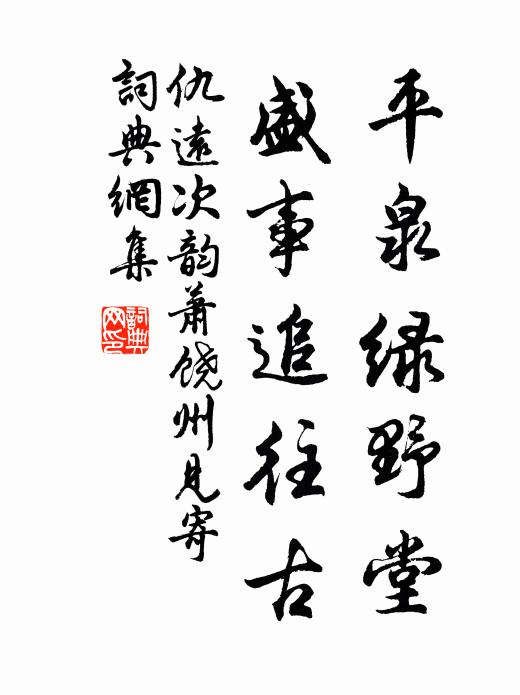 平泉緑野堂
盛事追往古
仇遠次韵蕭饒州見寄
詞典網集
詞典
网印